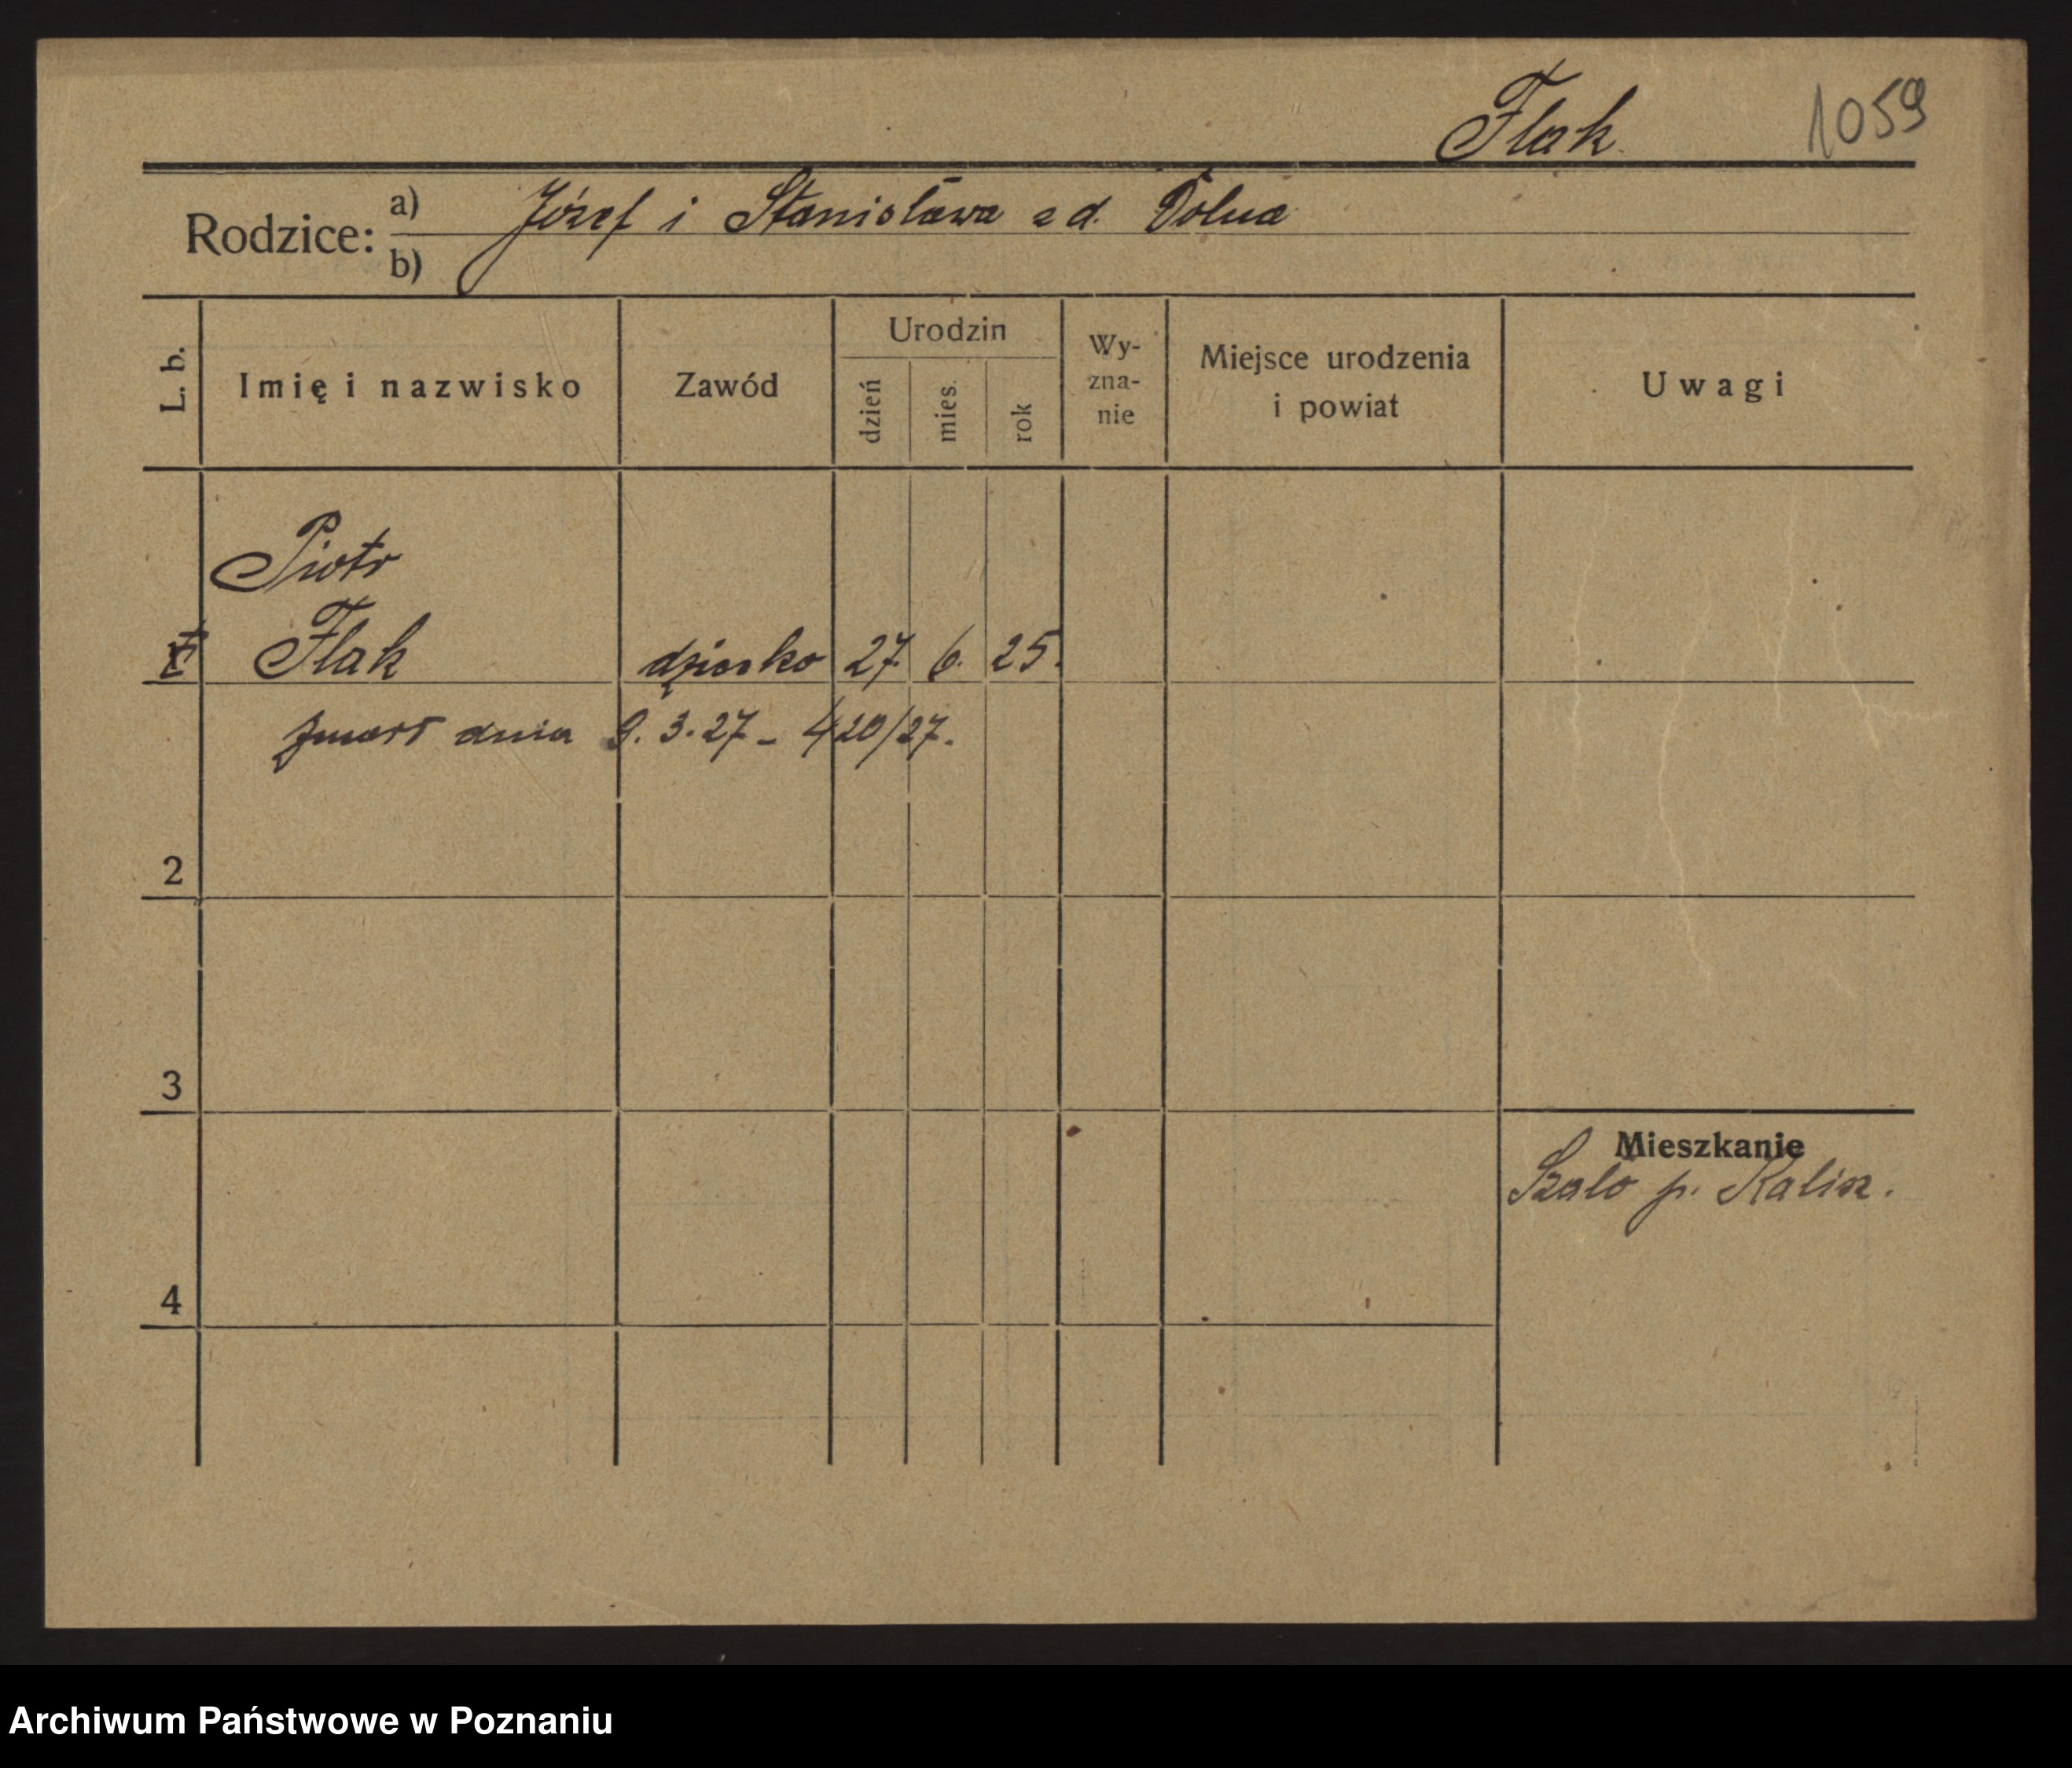 Flak 1059
Rodzice: a) Józef i Stanisława z d. Dolna
b)
L. b. Imię i nazwisko Zawód Urodzin dzień mies. rok Wy-zna-nie Miejsce urodzenia i powiat Uwagi
Piotr
1 Flak dziecko 27. 6. 25.
zmarł dnia 9. 3. 27 - 420/27.
2
3
Mieszkanie
Szalo p. Kalisz.
4
Archiwum Państwowe w Poznaniu